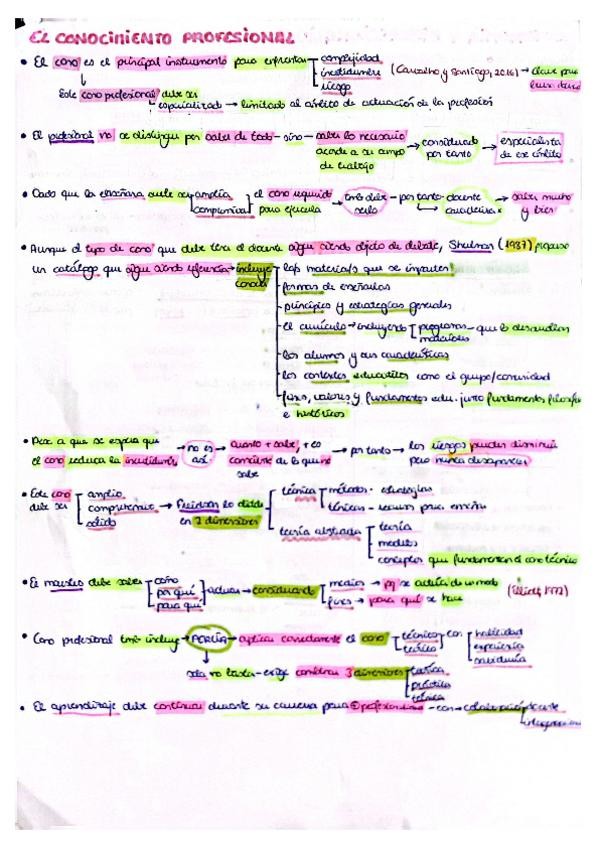 EL CONOCIMIENTO PROFESIONAL
• El cono es el principal instrumento para enfrentar complejidad
incertidumbre (Carvalho y Santiago, 2016) → clave para
riesgo
Este cono profesional debe ser
especializado → limitado al ámbito de actuación de la profesión
• El profesional no se distingue por saber de todo - sino - saber lo necesario → considerado → especialista
acorde a su campo por tanto de ese ámbito
de trabajo
• Dado que la enseñanza suele ser amplia el cono requerido → tmb debe - por tanto - docente → saber mucho
compromical para ejercerla serlo caracterizar y bien
• Aunque el tipo de cono que debe tener el docente sigue siendo objeto de debate, Shulman (1987) propuso
un catálogo que sigue siendo referencia → incluye la/s materia/s que se imparten
cono de
formas de enseñarlas
principios y estrategias generales
el currículo → incluyendo programas - que lo desarrollan
materiales
los alumnos y sus características
los contextos educativos como el grupo/comunidad
fines, valores y fundamentos edu. junto fundamentos filosóf
e históricos
• Pese a que se espera que → no es → cuanto + sabe, + es → por tanto → los riesgos pueden disminuir
el cono reduzca la incertidumbre, así consciente de lo que no pero nunca desaparecer
sabe
• Este cono amplio técnica métodos - estrategias
debe ser comprensivo → lo divide técnicas - recursos para enseñar
sólido en 2 dimensiones teoría abstracta teoría
modelos
conceptos que fundamentan el cono técnico
• El maestro debe saber cómo medios → pq se actúa de un modo
por qué actuar → considerando (1992)
para qué fines → para qué se hace
• Cono profesional tmb incluye → PERICIA → aplicar correctamente el cono técnico con habilidad
teórico experiencia
sabiduría
sola no basta - exige combinar 3 dimensiones teórica
práctica
técnica
• El aprendizaje debe continuar durante su carrera para profesional - con → colaboración docente